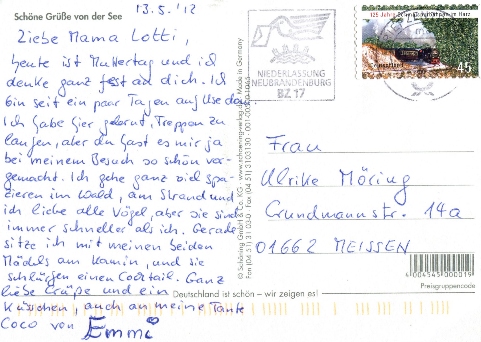 Schöne Grüße von der See
13.5.'12
Liebe Mama Lotti,
heute ist Muttertag und ich
denke ganz fest an dich. Ich
bin seit ein paar Tagen auf Usedom
Ich habe hier gelernt, Treppen zu
laufen, aber du hast es mir ja
bei meinem Besuch so schön vor-
gemacht. Ich gehe ganz viel spa-
zieren im Wald, am Strand und
ich liebe alle Vögel, aber sie sind
immer schneller als ich. Gerade
sitze ich mit meinen beiden
Mädels am Kamin, und sie
schlürfen einen Cocktail. Ganz
liebe Grüße und ein
Küsschen, auch an meine Tante
Coco von Emmi
NIEDERLASSUNG
NEUBRANDENBURG
BZ 17
125 Jahre Schmalspurbahnen im Harz
45
© Schöning GmbH & Co. KG
Made in Germany
Frau
Ulrike Möring
Grundmannstr. 14a
01662 MEISSEN
4 004545 000019
Preisgruppencode
Deutschland ist schön – wir zeigen es!